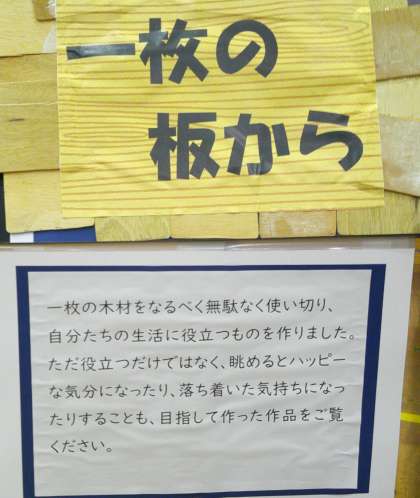 一枚の
板から
一枚の木材をなるべく無駄なく使い切り、
自分たちの生活に役立つものを作りました。
ただ役立つだけではなく、眺めるとハッピー
な気分になったり、落ち着いた気持ちになっ
たりすることも、目指して作った作品をご覧
ください。